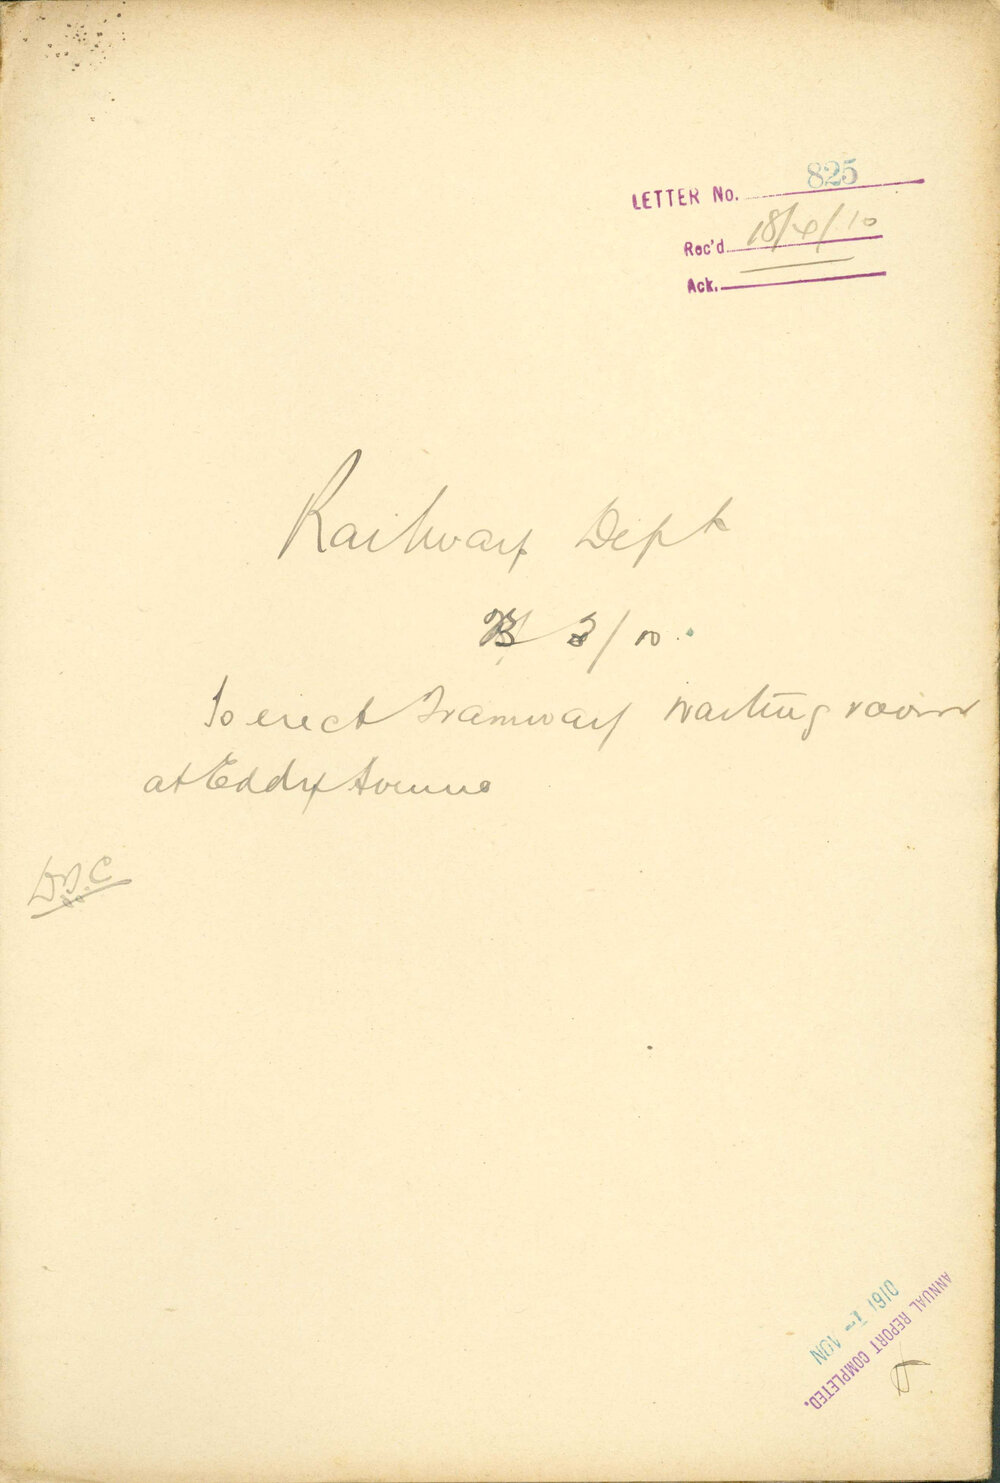 LETTER No. 825
Rec'd 18/4/10
Ack.
Railway Dept
3/10
To erect Tramway waiting room
at Eddy Avenue
ANNUAL REPORT COMPLETED.
1910